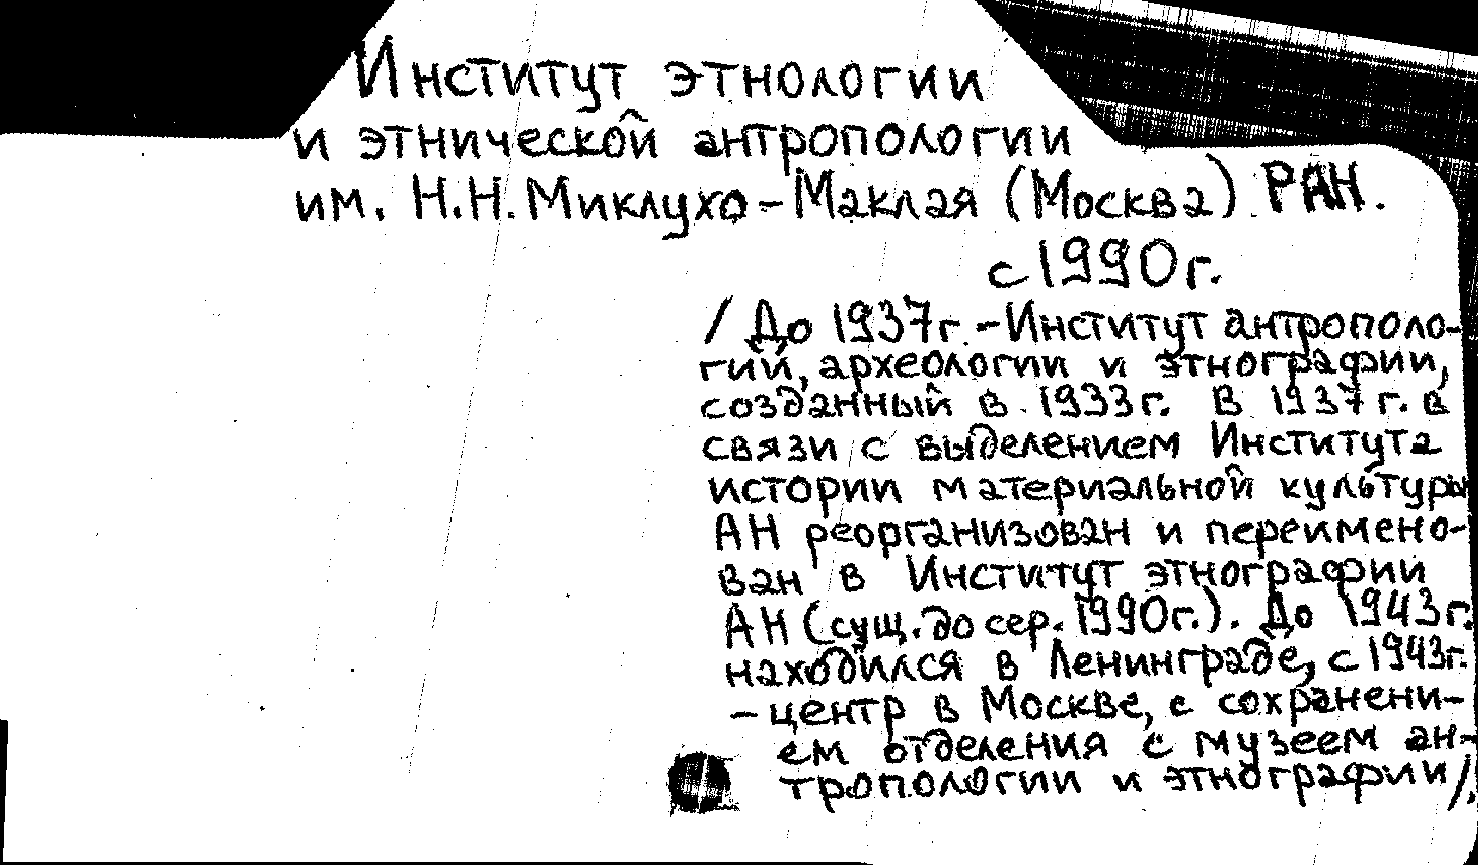 Институт этнологии
и этнической антропологии
им. Н.Н. Миклухо-Маклая (Москва) РАН.
с 1990г.
/ До 1937г. - Институт антрополо-
гии, археологии и этнографии,
созданный в 1933г. В 1937г. в
связи с выделением Института
истории материальной культуры
АН реорганизован и переимено-
ван в Институт этнографии
АН (сущ. до сер. 1990г.). До 1943г.
находился в Ленинграде, с 1943г.
- центр в Москве, с сохранени-
ем отделения с музеем ан-
тропологии и этнографии/.